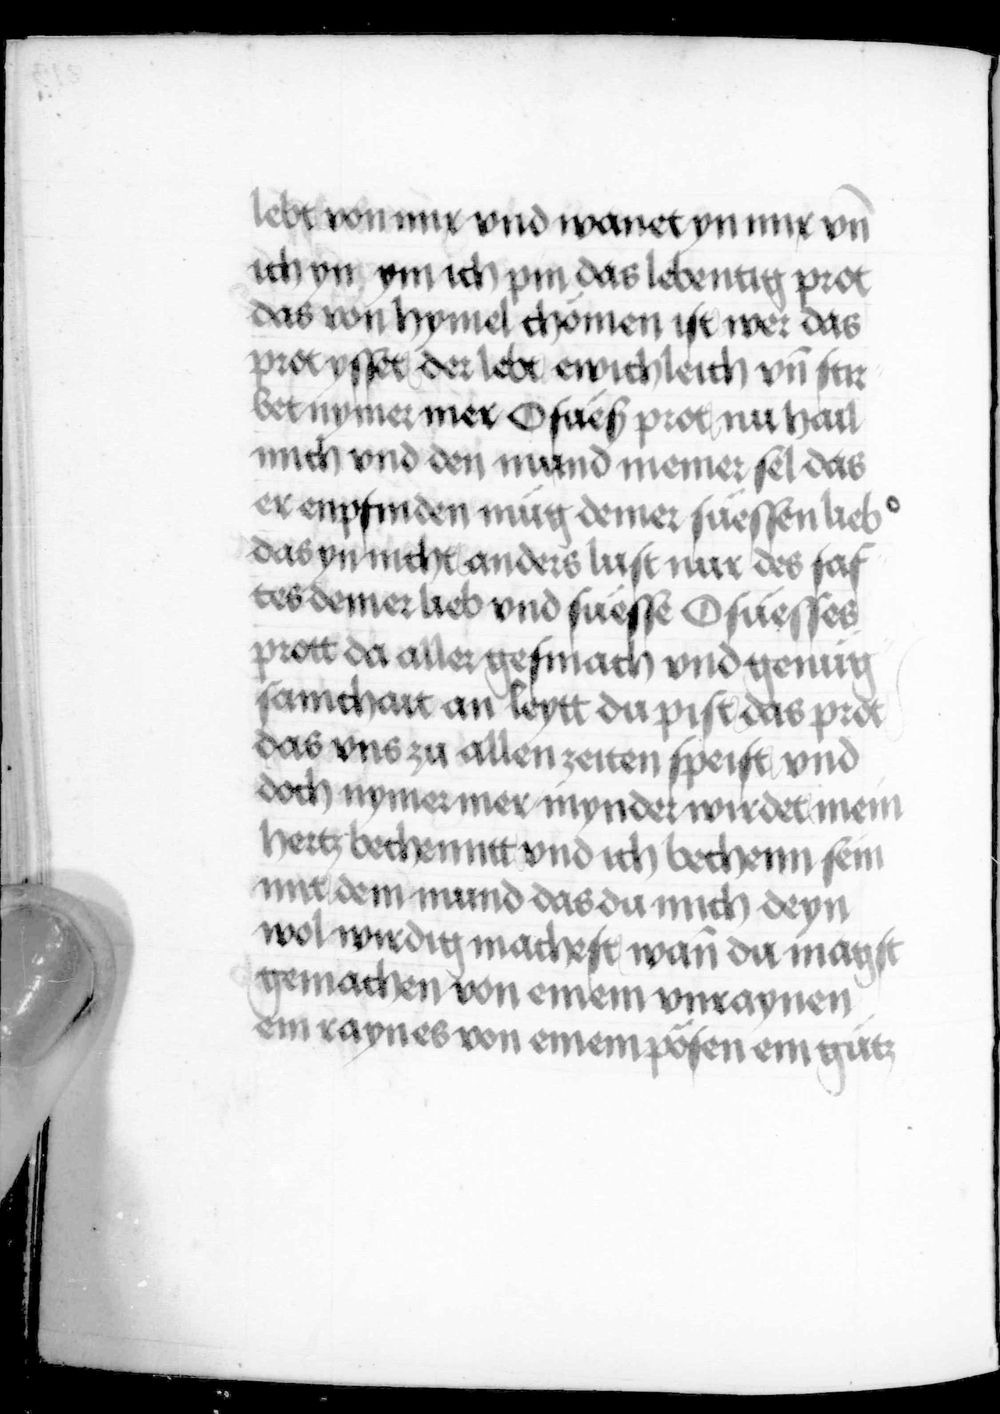 lebt von mir vnd wanet yn mir vn̄
ich yn ym ich pin das lebentig prot
das von hymel chömen ist wer das
prot ysset der lebt ewichleich vn̄ stir
bet nymer mer O süeß prot nu hail
mich vnd den mund meiner sel das
er enpfinden müg deiner süessen lieb
das yn nicht anders lust nur des saf
tes deiner lieb vnd süesse O süesses
prott da aller gesmach vnd genüg
samchait an leytt du pist das prot
das vns zu allen zeiten speist vnd
doch nymer mer mynder wirdet mein
hertz bechenntt vnd ich bechenn sein
mit dem mund das du mich deyn
wol wirdig machest wan̄ du magst
gemachen von einem vnraynen
ein raynes von einem pösen ein gütz